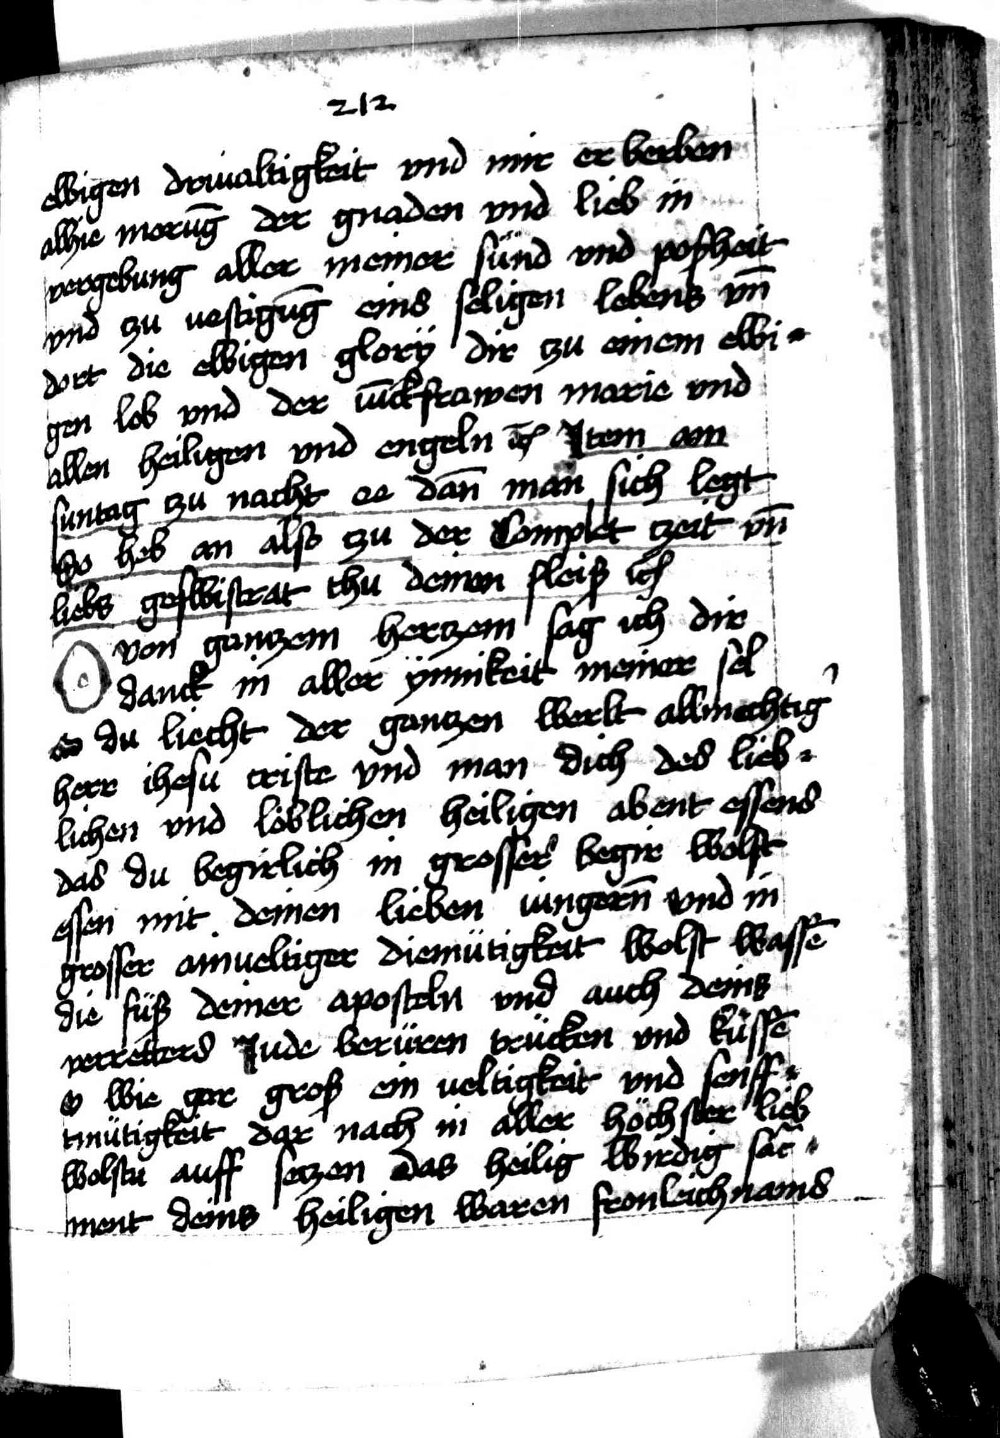 212
ewigen driualtigkeit vnd mir er berben
alhie merūg der gnaden vnd lieb in
vergebung aller meiner sünd vnd posheit
vnd zu vestigūg eins seligen lebens vn̄
dort die ewigen glory dir zu einem ewi-
gen lob vnd der iūckfrawen marie vnd
allen heiligen vnd engeln Item am
suntag zu nacht ee dan̄ man sich legt
So heb an also zu der Complet zeit vn̄
liebs geswistrat thu deinen fleiß ich
O von gantzem hertzem sag ich dir
danck in aller ynnikeit meiner sel
o du liecht der gantzen werlt allmechtig
herr ihesu criste vnd man dich des lieb-
lichen vnd löblichen heiligen abent essens
das du begirlich in grosser begir wolst
essen mit deinen lieben iungern̄ vnd in
grosser ainueltiger diemütigkeit wolst wassē
die füß deiner aposteln vnd auch deins
verretters Jude berüren trücken vnd küssē
o wie gar groß ein veltigkeit vnd senff-
tmütigkeit dar nach in aller höchster lieb
wolstu auff setzen das heilig wirdig sac̄-
ment deins heiligen waren fronleichnams